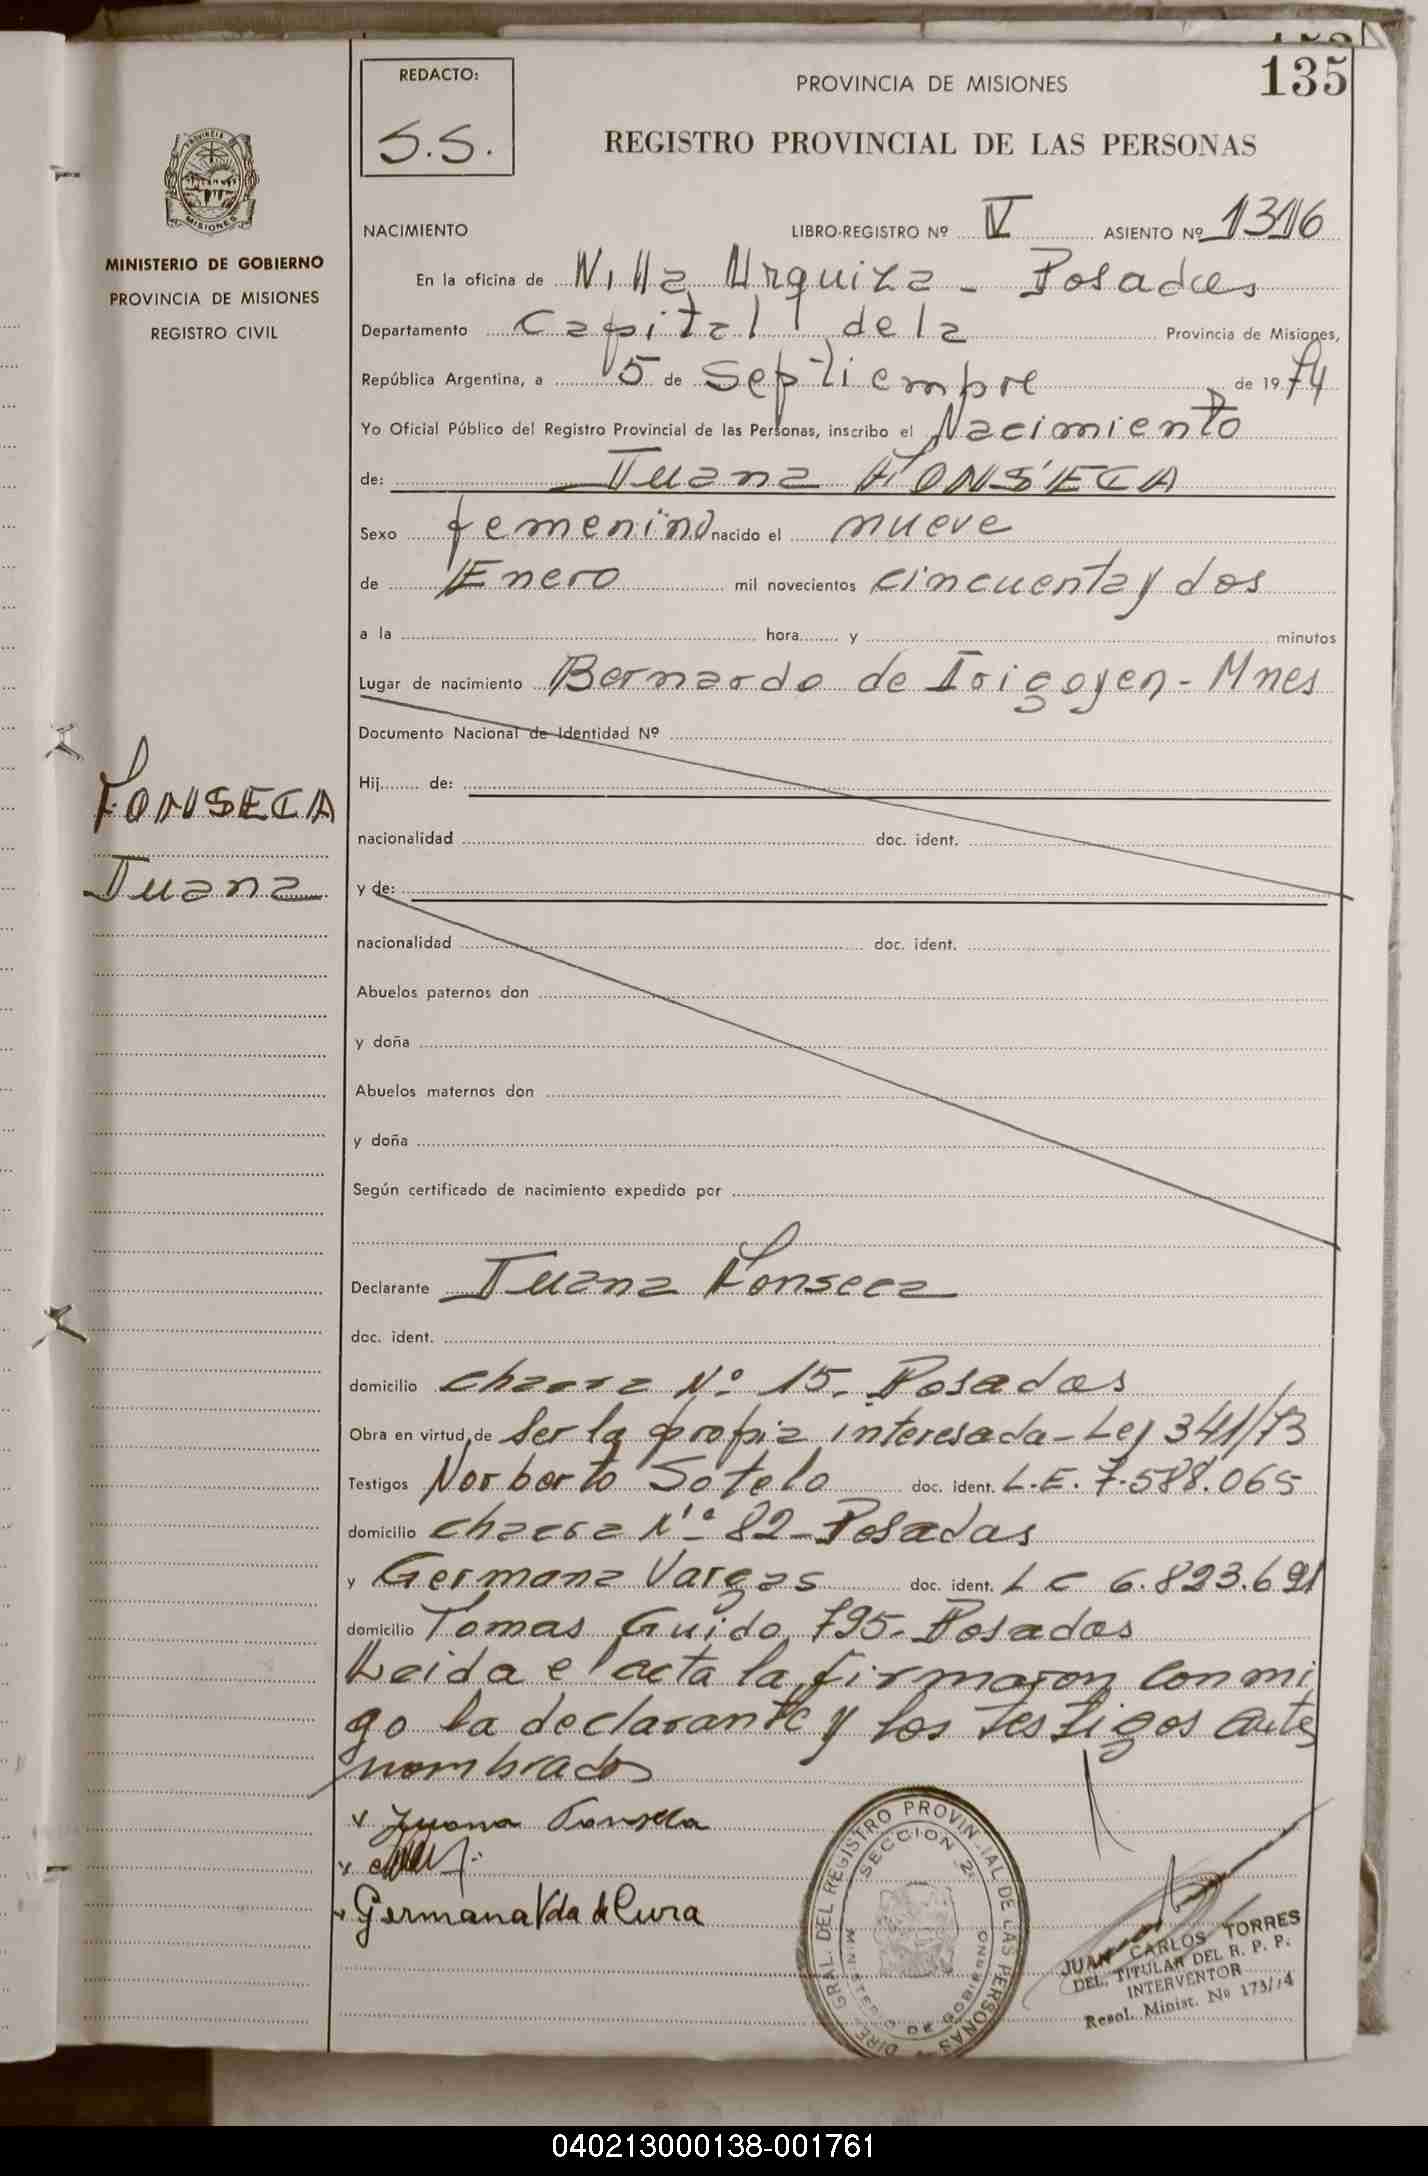 135
REDACTO:
S.S.
PROVINCIA DE MISIONES
REGISTRO PROVINCIAL DE LAS PERSONAS
PROVINCIA
MISIONES
MINISTERIO DE GOBIERNO
PROVINCIA DE MISIONES
REGISTRO CIVIL
NACIMIENTO LIBRO-REGISTRO Nº V ASIENTO Nº 1316
En la oficina de Villa Urquiza - Posadas
Departamento Capital de la Provincia de Misiones,
República Argentina, a 5 de Septiembre de 1974
Yo Oficial Público del Registro Provincial de las Personas, inscribo el Nacimiento
de: Juana FONSECA
Sexo femenino nacido el nueve
de Enero mil novecientos cincuenta y dos
a la hora y minutos
Lugar de nacimiento Bernardo de Irigoyen - Mnes
Documento Nacional de Identidad Nº
FONSECA
Juana
Hij de:
nacionalidad doc. ident.
y de:
nacionalidad doc. ident.
Abuelos paternos don
y doña
Abuelos maternos don
y doña
Según certificado de nacimiento expedido por
Declarante Juana Fonseca
doc. ident.
domicilio chacra Nº 15. Posadas
Obra en virtud de ser la propia interesada - Ley 341/73
Testigos Norberto Sotelo doc. ident. L.E. 7.588.065
domicilio chacra Nº 82 - Posadas
y Germana Vargas doc. ident. L C 6.823.691
domicilio Tomas Guido 795. Posadas
Leida el acta la firmaron conmi
go la declarante y los testigos ante
nombrados
Juana Fonseca
Germana Vda de Cura
DIRE. GRAL. DEL REGISTRO PROVINCIAL DE LAS PERSONAS
SECCION 2ª
MINISTERIO DE GOBIERNO
JUAN CARLOS TORRES
DEL. TITULAR DEL R. P. P.
INTERVENTOR
Resol. Minist. Nº 173/74
040213000138-001761